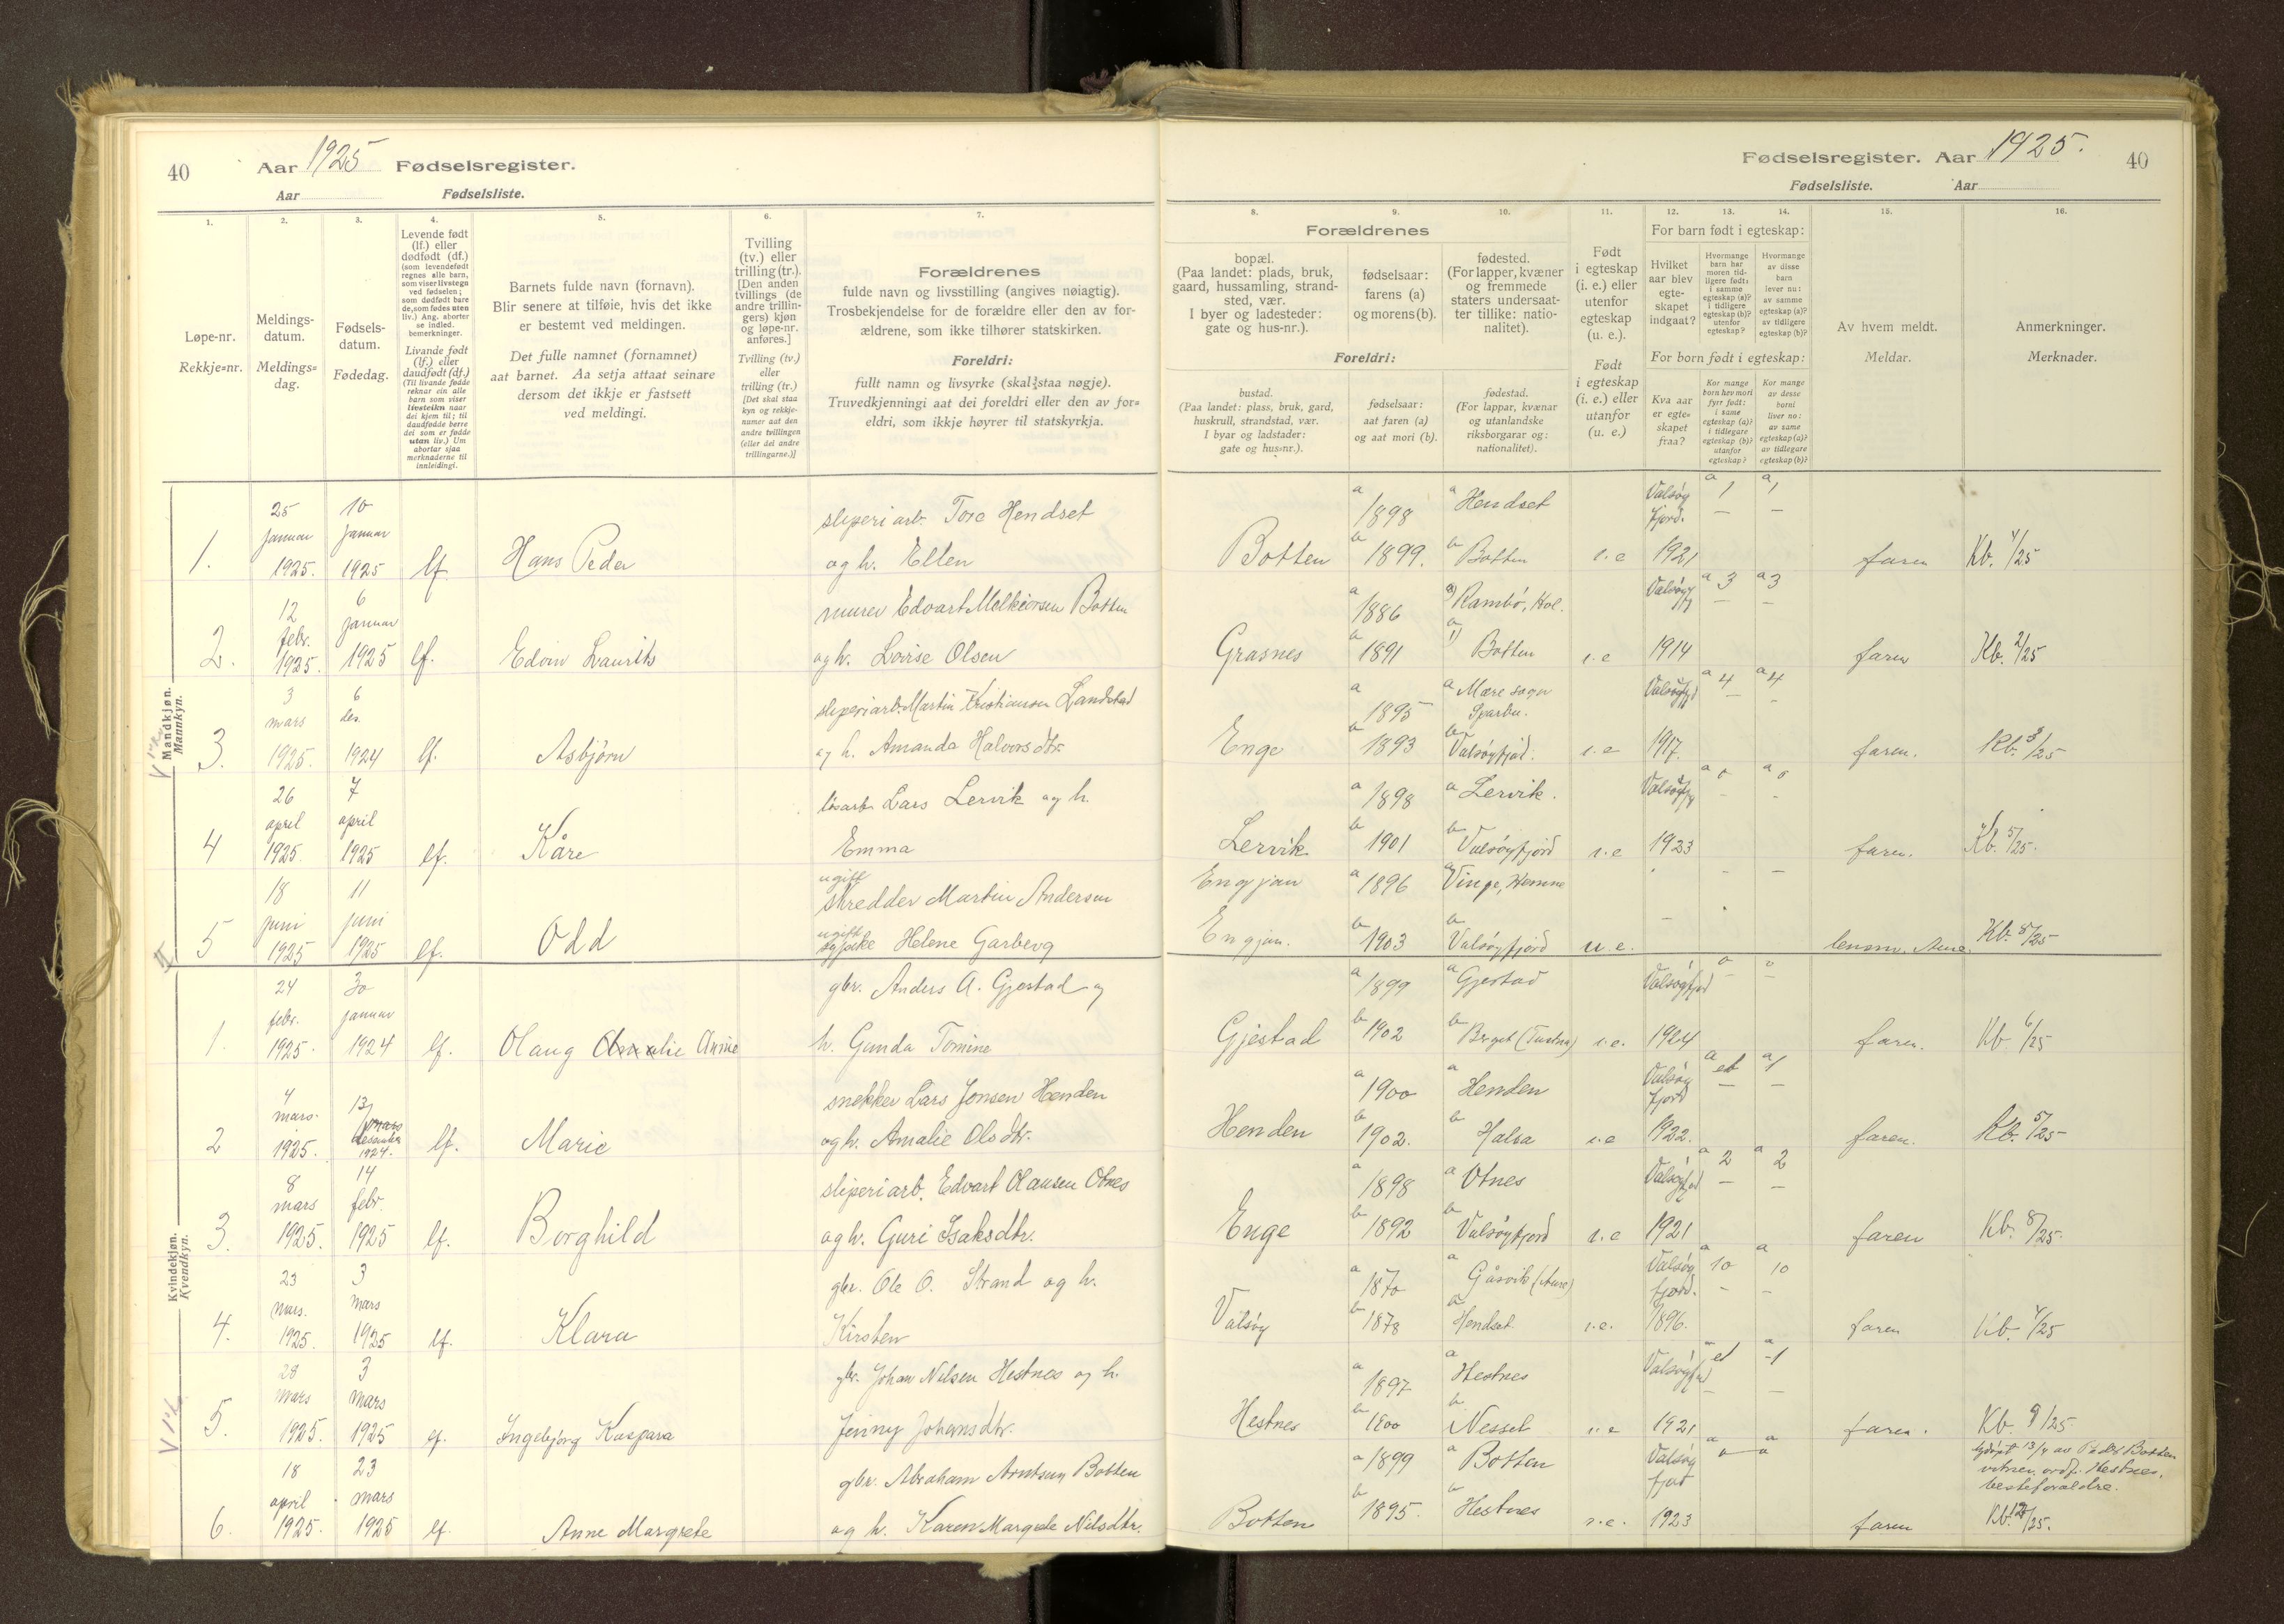 40
Aar 1925 Fødselsregister.
Aar Fødselsliste.
Fødselsregister. Aar 1925.
40
Fødselsliste. Aar
1. 2. 3. 4. 5. 6. 7.
8. 9. 10. 11. 12. 13. 14. 15. 16.
Løpe-nr.
Rekkje=nr.
Meldings-
datum.
Meldings=
dag.
Fødsels-
datum.
Fødedag.
Levende født
(lf.) eller
dødfødt (df.)
(som levendefødt
regnes alle barn,
som viser livstegn
ved fødselen;
som dødfødt bare
de, som fødes uten
liv.) Ang. aborter
se indled.
bemerkninger.
Livande født
(lf.) eller
daudfødt (df.)
(Til livande fødde
reknar ein alle
barn som viser
livsteikn naar
dei kjem til; til
daudfødde berre
dei som er fødde
utan liv.) Um
abortar sjaa
merknaderne til
innleidingi.
Barnets fulde navn (fornavn).
Blir senere at tilføie, hvis det ikke
er bestemt ved meldingen.
Det fulle namnet (fornamnet)
aat barnet. Aa setja attaat seinare
dersom det ikkje er fastsett
ved meldingi.
Tvilling
(tv.) eller
trilling (tr.).
[Den anden
tvillings (de
andre trillin-
gers) kjøn
og løpe-nr.
anføres.]
Tvilling (tv.)
eller
trilling (tr.)
[Det skal staa
kyn og rekkje-
numer aat den
andre tvillingen
(eller dei andre
trillingarne.)]
Forældrenes
fulde navn og livsstilling (angives nøiagtig).
Trosbekjendelse for de forældre eller den av for-
ældrene, som ikke tilhører statskirken.
Foreldri:
fullt namn og livsyrke (skal staa nøgje).
Truvedkjenningi aat dei foreldri eller den av for=
eldri, som ikkje høyrer til statskyrkja.
Forældrenes
bopæl.
(Paa landet: plads, bruk,
gaard, hussamling, strand-
sted, vær.
I byer og ladesteder:
gate og hus-nr.).
fødselsaar:
farens (a)
og morens (b).
fødested.
(For lapper, kvæner
og fremmede
staters undersaat-
ter tillike: natio-
nalitet).
Foreldri:
bustad.
(Paa landet: plass, bruk, gard,
huskrull, strandstad, vær.
I byar og ladstader:
gate og hus=nr.).
fødselsaar:
aat faren (a)
og aat mori (b).
fødestad.
(For lappar, kvænar
og utanlandske
riksborgarar og:
nationalitet).
Født
i egteskap
(i. e.) eller
utenfor
egteskap
(u. e.).
Født
i egteskap
(i. e.) eller
utanfor
(u. e.)
For barn født i egteskap:
Hvilket
aar blev
egte-
skapet
indgaat?
Hvormange
barn har
moren tid-
ligere født:
i samme
egteskap (a)?
i tidligere
egteskap (b)?
utenfor
egteskap?
Hvormange
av disse
barn
lever nu:
av samme
egteskap (a)?
av tidligere
egteskap (b)?
For born født i egteskap:
Kva aar
er egte-
skapet
fraa?
Kor mange
born hev mori
fyrr født:
i same
egteskap (a)?
i tidlegare
egteskap (b)?
utanfor
egteskap?
Kor mange
av desse
borni
liver no:
av same
egteskap (a)?
av tidlegare
egteskap (b)?
Av hvem meldt.
Meldar.
Anmerkninger.
Merknader.
Mandkjøn.
Mannkyn.
1. 25 januar 1925. 10 januar 1925 lf. Hans Peder
sliperiarb. Tore Hendset
og h. Ellen
Botten a 1898 b 1899. a Hendset b Botten i.e Valsøyfjord. 1921 a 1 a 1 faren Kb. 4/25
2. 12 febr. 1925. 6 januar 1925 lf. Edvin Laurits
murer Edvart Melkiorsen Botten
og h. Lovise Olsen
Grasnes a 1886 b 1891 Rambö, Hol. Botten i.e 1914 a 3 a 3 faren Kb. 2/25
3. 3 mars 1925. 6 des. 1924 lf. Asbjørn
sliperiarb. Martin Kristiansen Landstad
og h. Amanda Halvorsdtr.
Enge a 1895 b 1893 a Mære sogn Sparbu. b Valsøyfjord. i.e 1917. a 4 a 4 faren. Kb. 3/25
4 26 april 1925. 7 april 1925 lf. Kåre
løsarb. Lars Lervik og h.
Emma
Lervik a 1898 b 1901 a Lervik. b Valsøyfjord i.e 1923 a o a o faren. Kb. 5/25.
5 18 juni 1925 11 juni 1925 lf. Odd
ugift
skredder Martin Andersen
ugift
og pike Helene Garberg
Engjan a 1896 a Vinje, Hemne
Engjan. b 1903 b Valsøyfjord u.e. lensm. Aure. Kb. 8/25
Kvindekjøn.
Kvendkyn.
1. 24 febr. 1925. 30 januar 1924 lf. Olaug Amalie Anine
gbr. Anders A. Gjestad og
h. Gunda Tomine
Gjestad a 1899 b 1902 a Gjestad b Berget (Tustna) i.e. Valsøyfjord 1924 o o faren. Kb. 6/25
2 4 mars. 1925. 13 mars desember 1924. lf. Marie
snekker Lars Jonsen Henden
og h. Amalie Olsdtr.
Henden a 1900 b 1902. a Henden b Halsa i.e Valsøyfjord 1922. a et a 1 faren. Kb. 5/25
3. 8 mars 1925. 14 febr. 1925 lf. Borghild
sliperiarb. Edvart Olausen Otnes
og h. Guri Isaksdtr.
Enge a 1898 b 1892 a Otnes b Valsøyfjord i.e Valsøyfjord 1921 a 2 a 2 faren Kb. 8/25.
4. 23 mars. 1925. 3 mars 1925 lf. Klara
gbr. Ole O. Strand og h.
Kirsten
Valsøy a 1870 b 1878 a Gåsvik (Aure) Hendset. i.e. Valsøyfjord. 1896. a 10 a 10 faren Kb. 4/25
5. 28 mars 1925. 3 mars 1925 lf. Ingebjørg Kaspara
gbr. Johan Nilsen Hestnes og h.
Jenny Johansdtr.
Hestnes a 1897 b 1900 a Hestnes b Nesset i.e Valsøyfjord 1921 et 1 faren. Kb. 9/25
6. 18 april 1925. 23 mars 1925 lf. Anne Margrete
gbr. Abraham Arntsen Botten
og h. Karen Margrete Nilsdtr.
Botten a 1899 b 1895. a Botten b Hestnes i.e. Valsøyfjord 1923 faren
hjdøpt 13/4 av Peder Botten
vitner. ordf. Hestnes,
besteforældre.